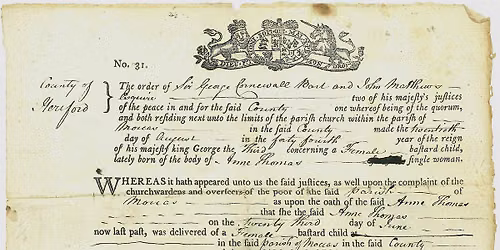 No. 31.
County of
Hereford
The order of Sir George Cornewall Bart and John Matthews
Esquire two of his majesty's justices
of the peace in and for the said County one whereof being of the quorum,
and both residing next unto the limits of the parish church within the parish of
Moccas in the said County made the twentieth
day of August in the forty fourth year of the reign
of his majesty king George the Third concerning a Female bastard child,
lately born of the body of Anne Thomas single woman.
WHEREAS it hath appeared unto us the said justices, as well upon the complaint of the
churchwardens and overseers of the poor of the said Parish of
Moccas as upon the oath of the said Anne Thomas
that she the said Anne Thomas
on the Twenty Third day of June
now last past, was delivered of a Female bastard child at
in the said parish of Moccas in the County